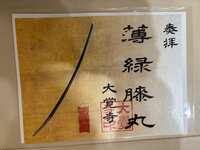 奉拝
薄緑膝丸
大覚寺